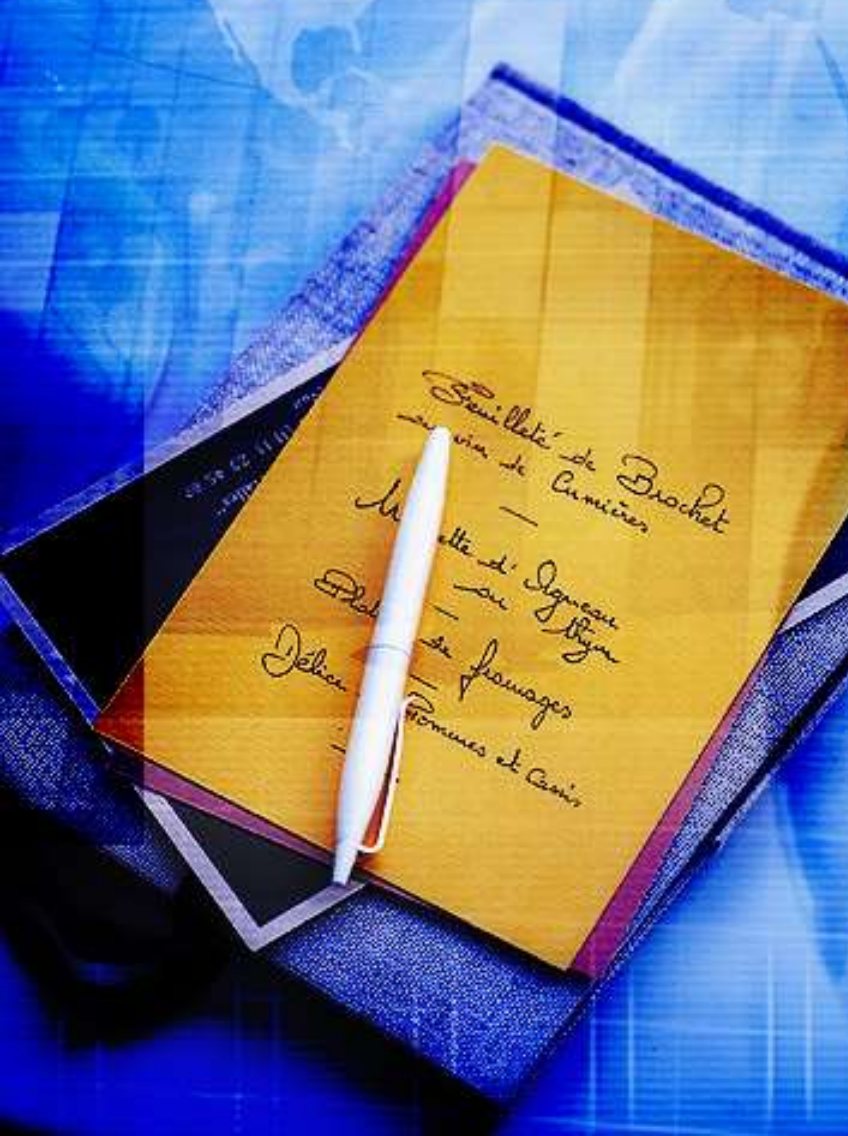 Feuilleté de Brochet
au vin de Cumières
ette d'Agneau
au thym
de fromages
Délice Pommes et Cassis